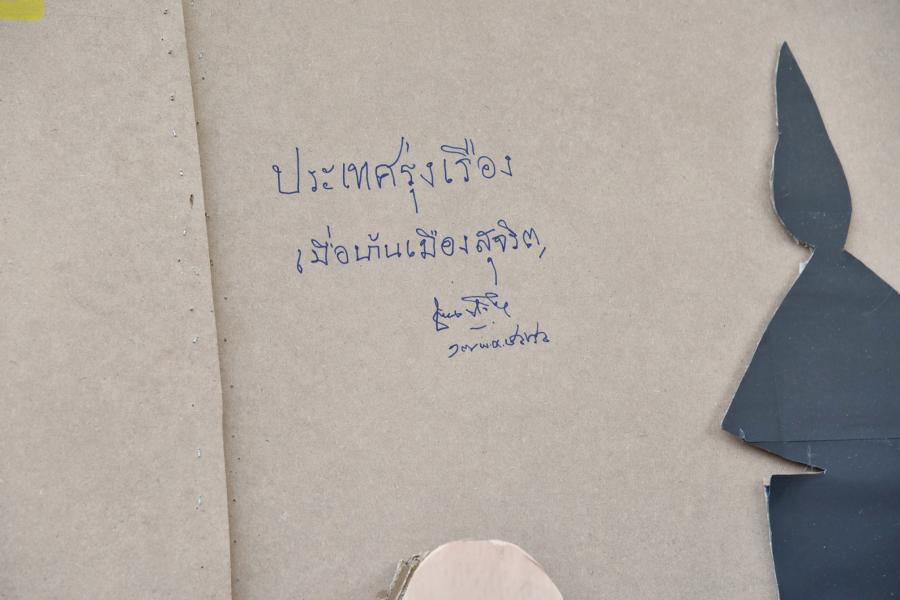 ประเทศรุ่งเรือง
เมื่อบ้านเมืองสุจริต